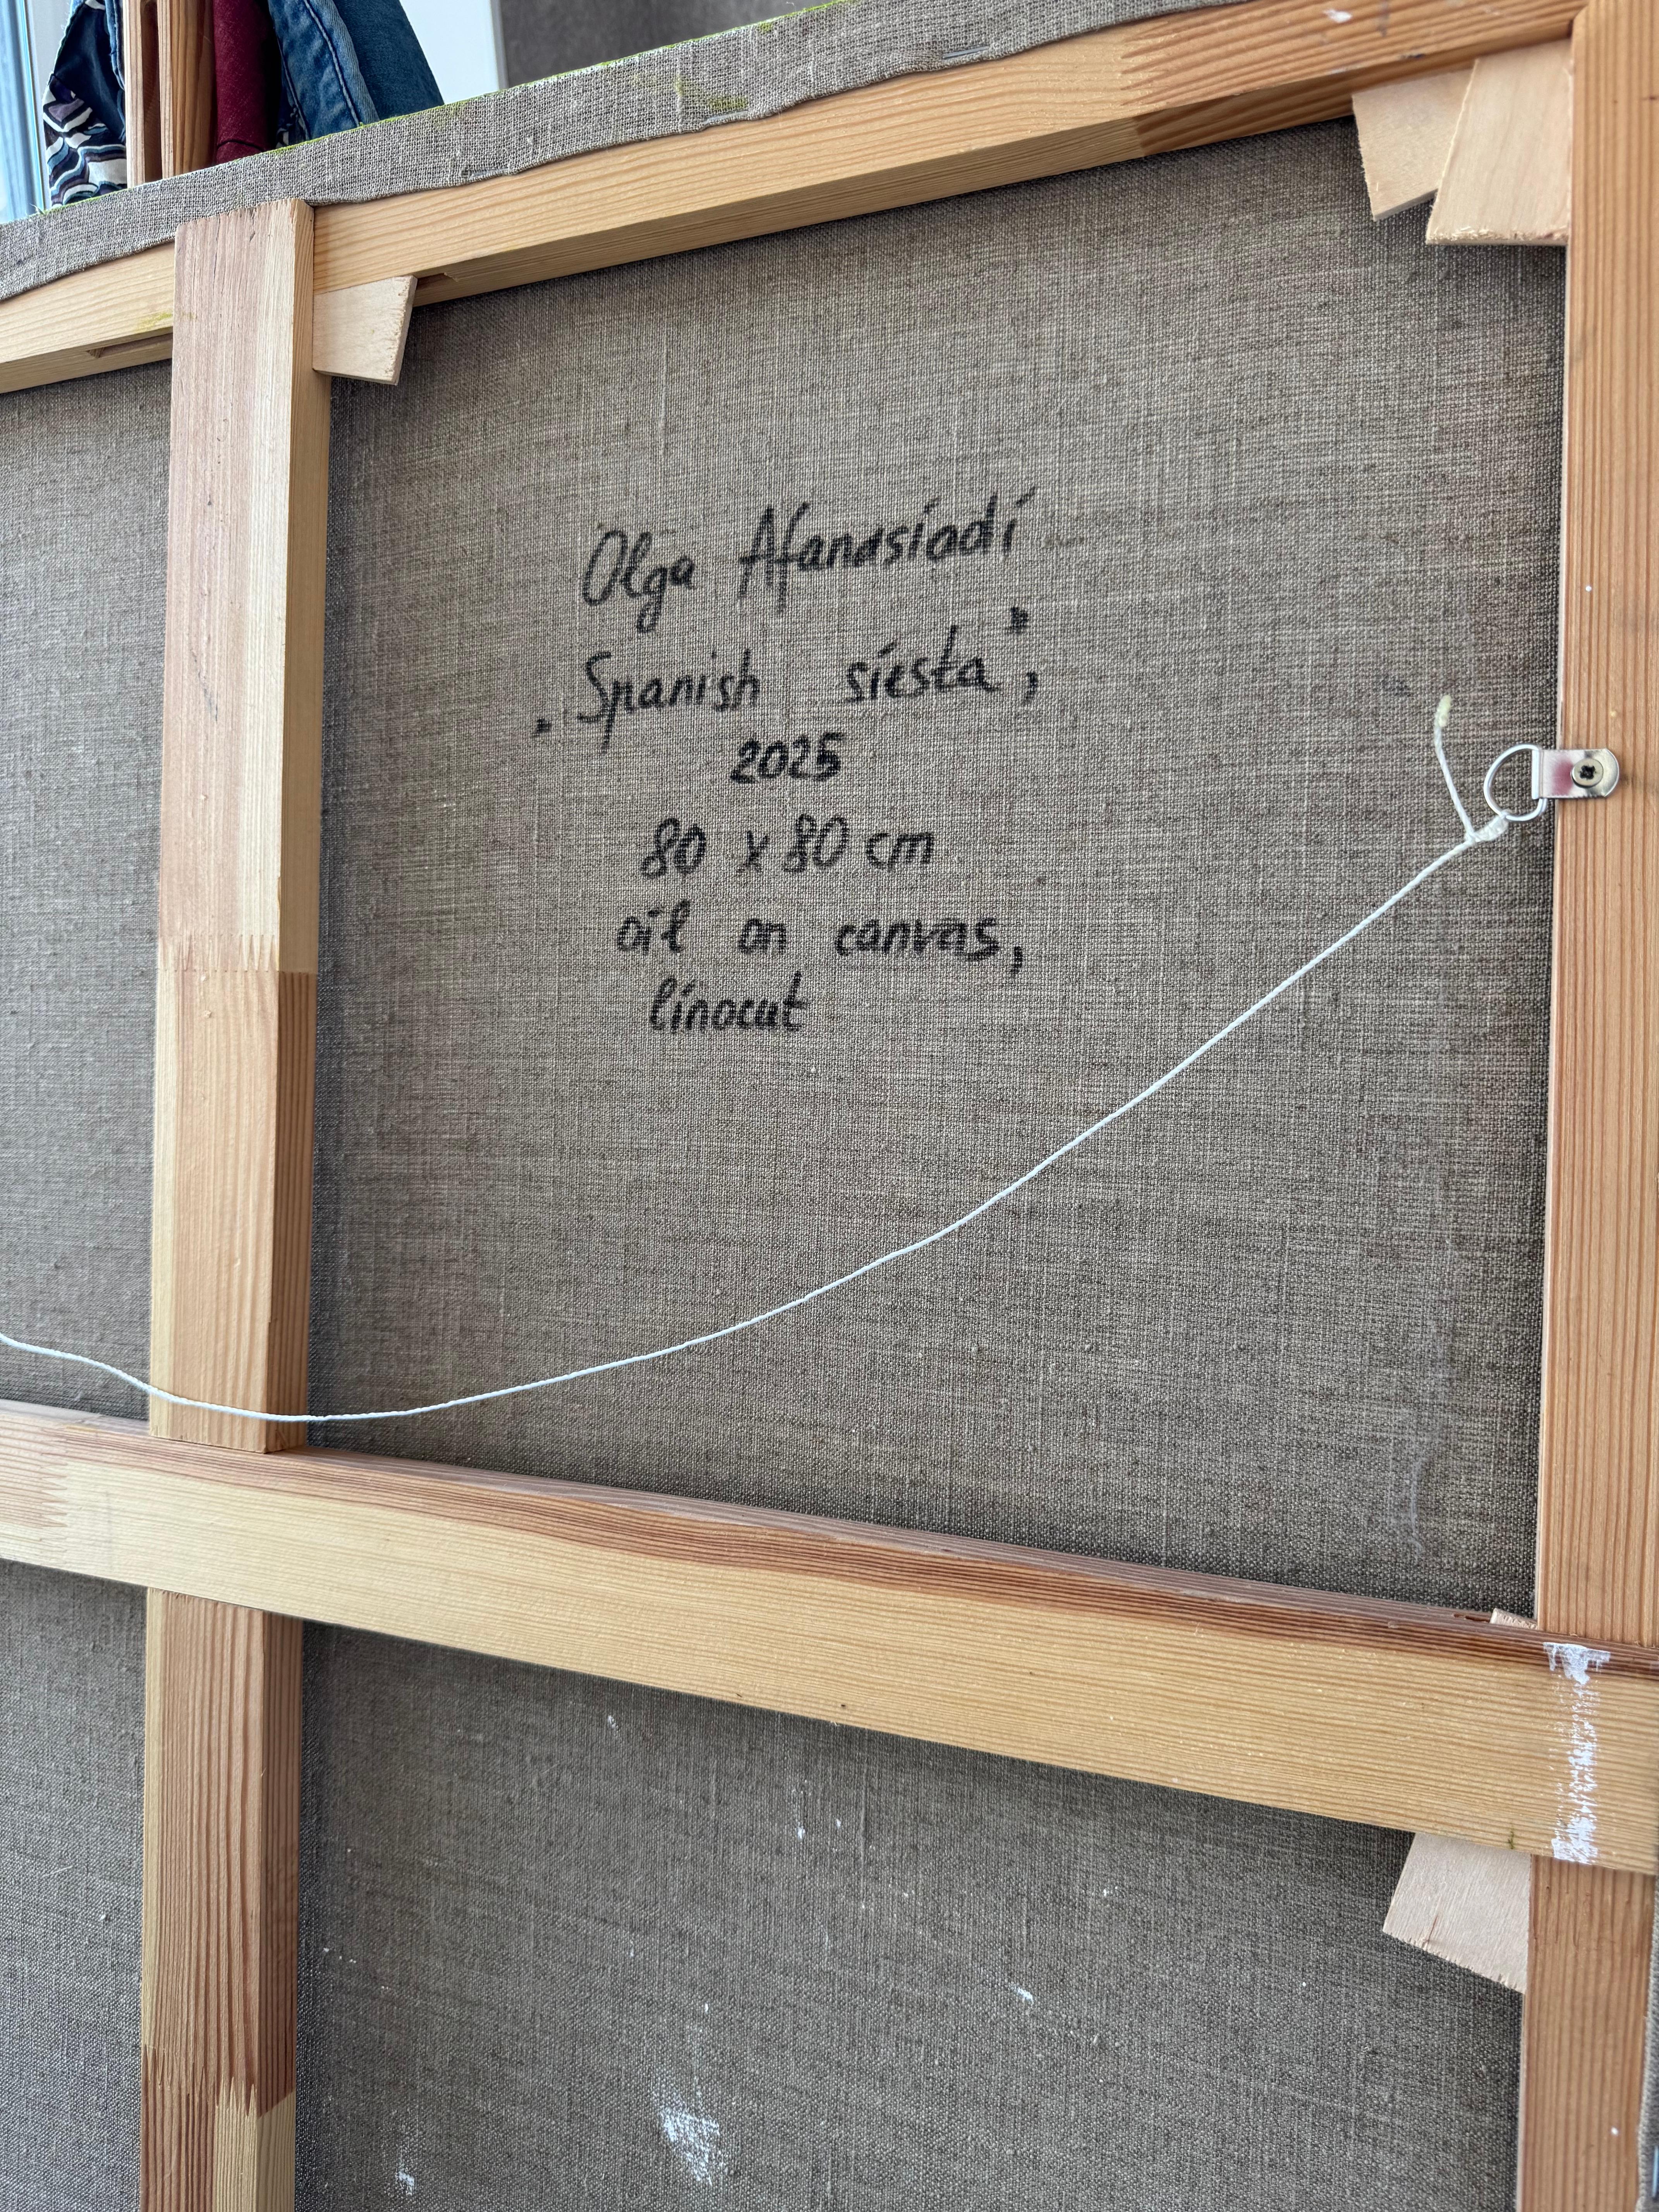 Olga Afanasiadi
„Spanish siesta”,
2025
80 x 80 cm
oil on canvas,
linocut